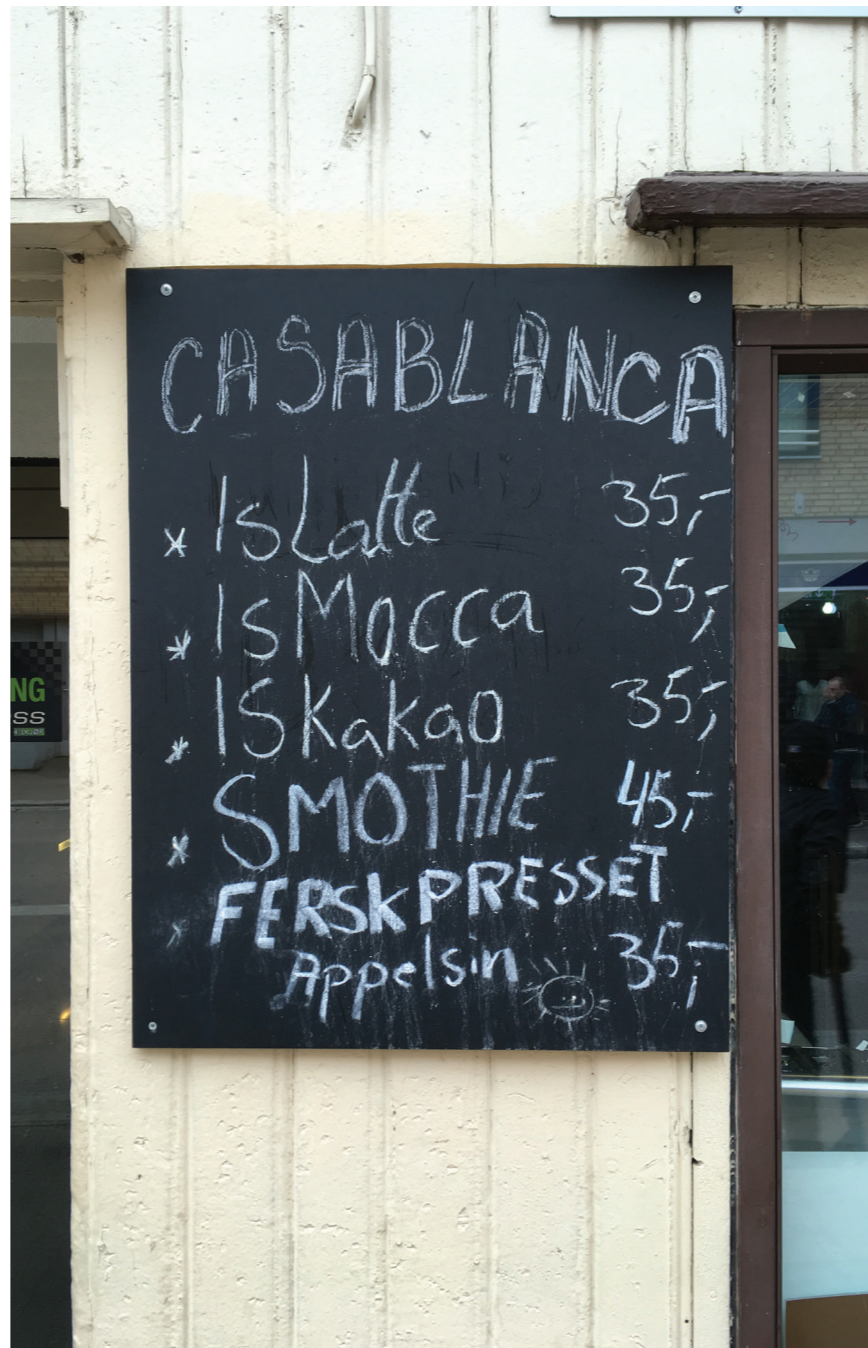 CASABLANCA
* IsLatte 35,-
* IsMocca 35,-
* ISKakao 35,-
* SMOTHIE 45,-
* FERSKPRESSET
Appelsin 35,-
NG
SS